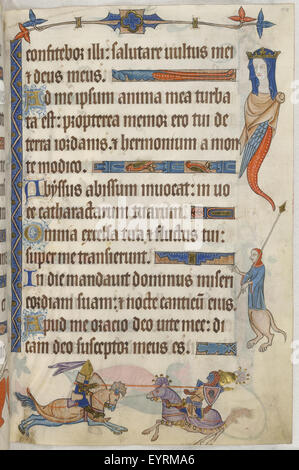 confitebor illi: salutare uultus mei
& deus meus.
Ad me ipsum anima mea turba
ta est: propterea memor ero tui de
terra iordanis, & hermonium a mon
te modico.
Abyssus abyssum inuocat: in uo
ce catharactarum tuarum.
Omnia excelsa tua & fluctus tui:
super me transierunt.
In die mandauit dominus miseri
cordiam suam: & nocte canticum eius.
Apud me oracio deo uite mee: di
cam deo susceptor meus es.
alamy stock photo
EYRMA6
www.alamy.com